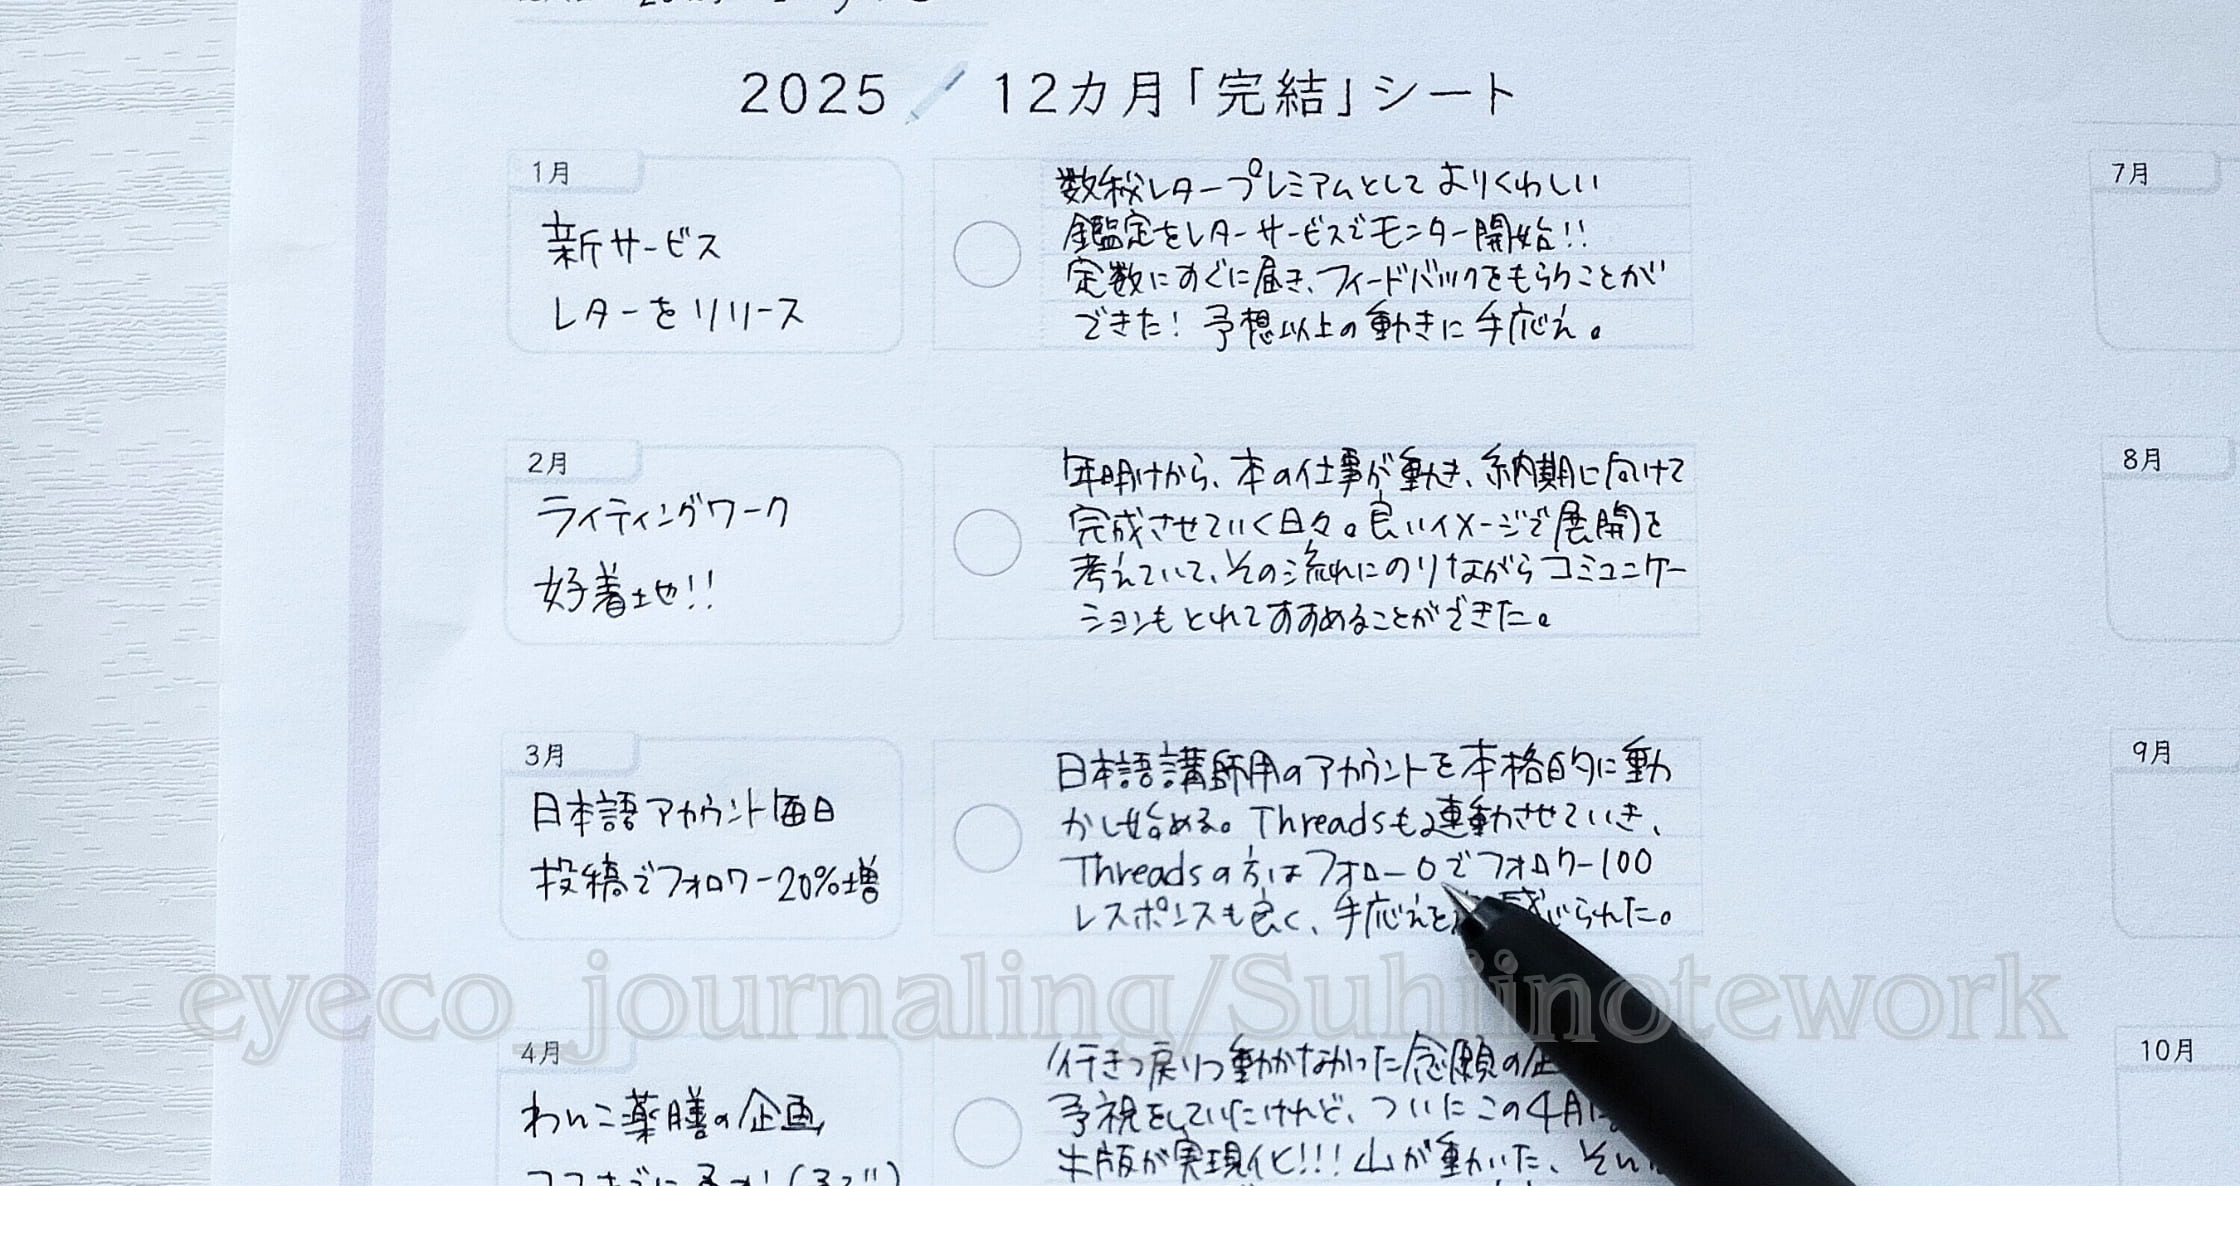 2025 12カ月「完結」シート
1月
新サービス
レターをリリース
数秘レタープレミアムとしてよりくわしい
鑑定をレターサービスでモニター開始!!
定数にすぐに届き、フィードバックをもらうことが
できた! 予想以上の動きに手応え。
2月
ライティングワーク
好着地!!
年明けから、本の仕事が動き、納期に向けて
完成させていく日々。良いイメージで展開を
考えていて、その流れにのりながらコミュニケー
ションもとれてすすめることができた。
3月
日本語アカウント毎日
投稿でフォロワー20%増
日本語講師用のアカウントを本格的に動
かし始める。Threadsも連動させていき、
Threadsの方はフォロー0でフォロワー100
レスポンスも良く、手応えを感じられた。
4月
わんこ薬膳の企画
行きつ戻りつ動かなかった念願の企
予祝をしていたけれど、ついにこの4月に
出版が実現化!!! 山が動いた、それ
7月
8月
9月
10月
eyeco_journaling/Suhiinotework